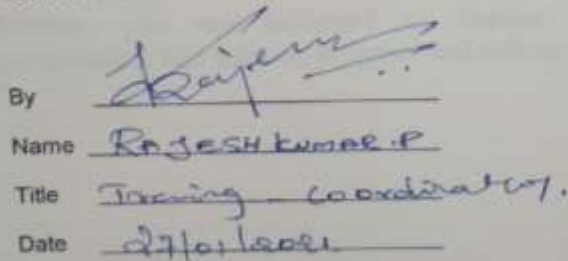 By
Name RAJESH KUMAR.P
Title Training Coordinator.
Date 27/01/2021